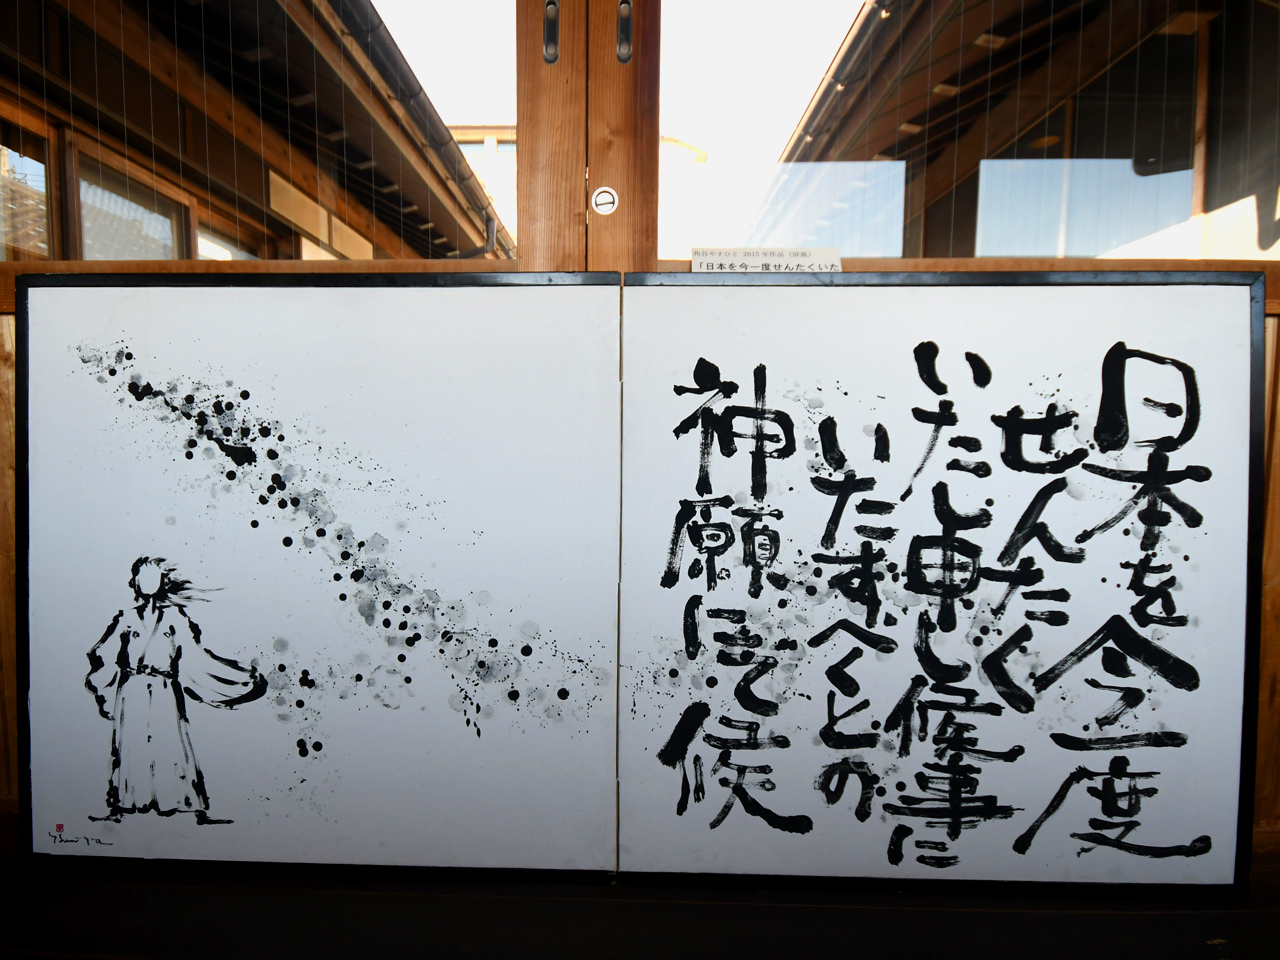 角谷やすひと 2015年作品（屏風）
「日本を今一度せんたくいた
日本を今一度
せんたく
いたし申し候事に
いたすべくとの
神願にて候